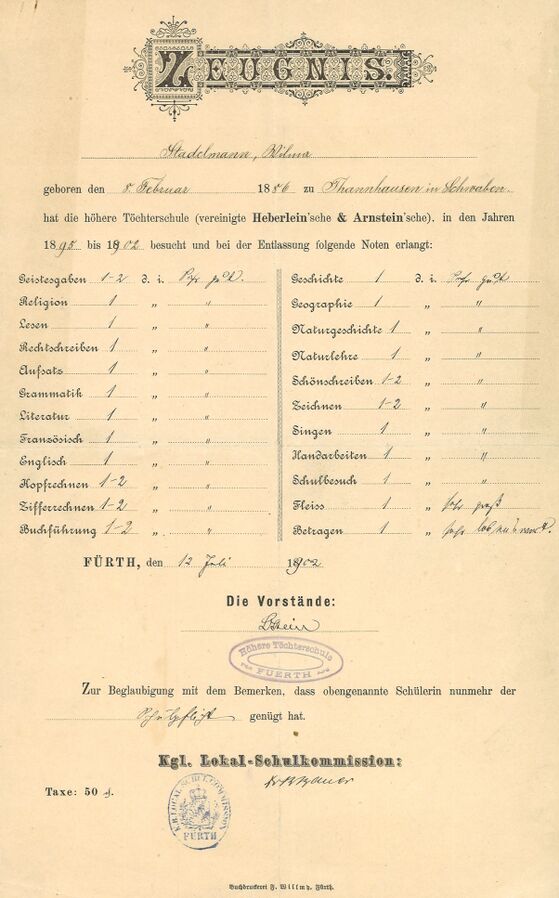 ZEUGNIS.
Stadelmann, Wilma
geboren den 8. Februar 1886 zu Thannhausen in Schwaben.
hat die höhere Töchterschule (vereinigte Heberlein'sche & Arnstein'sche), in den Jahren
1895 bis 1902 besucht und bei der Entlassung folgende Noten erlangt:
Geistesgaben 1-2 d. i. sehr gut.
Religion 1 „ "
Lesen 1 „ "
Rechtschreiben 1 „ "
Aufsatz 1 „ "
Grammatik 1 „ "
Literatur 1 „ "
Französisch 1 „ "
Englisch 1 „ "
Kopfrechnen 1-2 „ "
Zifferrechnen 1-2 „ "
Buchführung 1-2 „ "
Geschichte 1 d. i. sehr gut
Geographie 1 „ "
Naturgeschichte 1 „ "
Naturlehre 1 „ "
Schönschreiben 1-2 „ "
Zeichnen 1-2 „ "
Singen 1 „ "
Handarbeiten 1 „ "
Schulbesuch 1 „ "
Fleiss 1 „ sehr groß
Betragen 1 „ sehr lobenswert.
FÜRTH, den 12 Juli 1902
Die Vorstände:
Höhere Töchterschule
FUERTH
Zur Beglaubigung mit dem Bemerken, dass obengenannte Schülerin nunmehr der
Schulpflicht genügt hat.
Kgl. Lokal-Schulkommission:
Taxe: 50 ₰.
K.B. LOCAL-SCHUL-COMMISSION
FÜRTH
Buchdruckerei F. Willmy, Fürth.